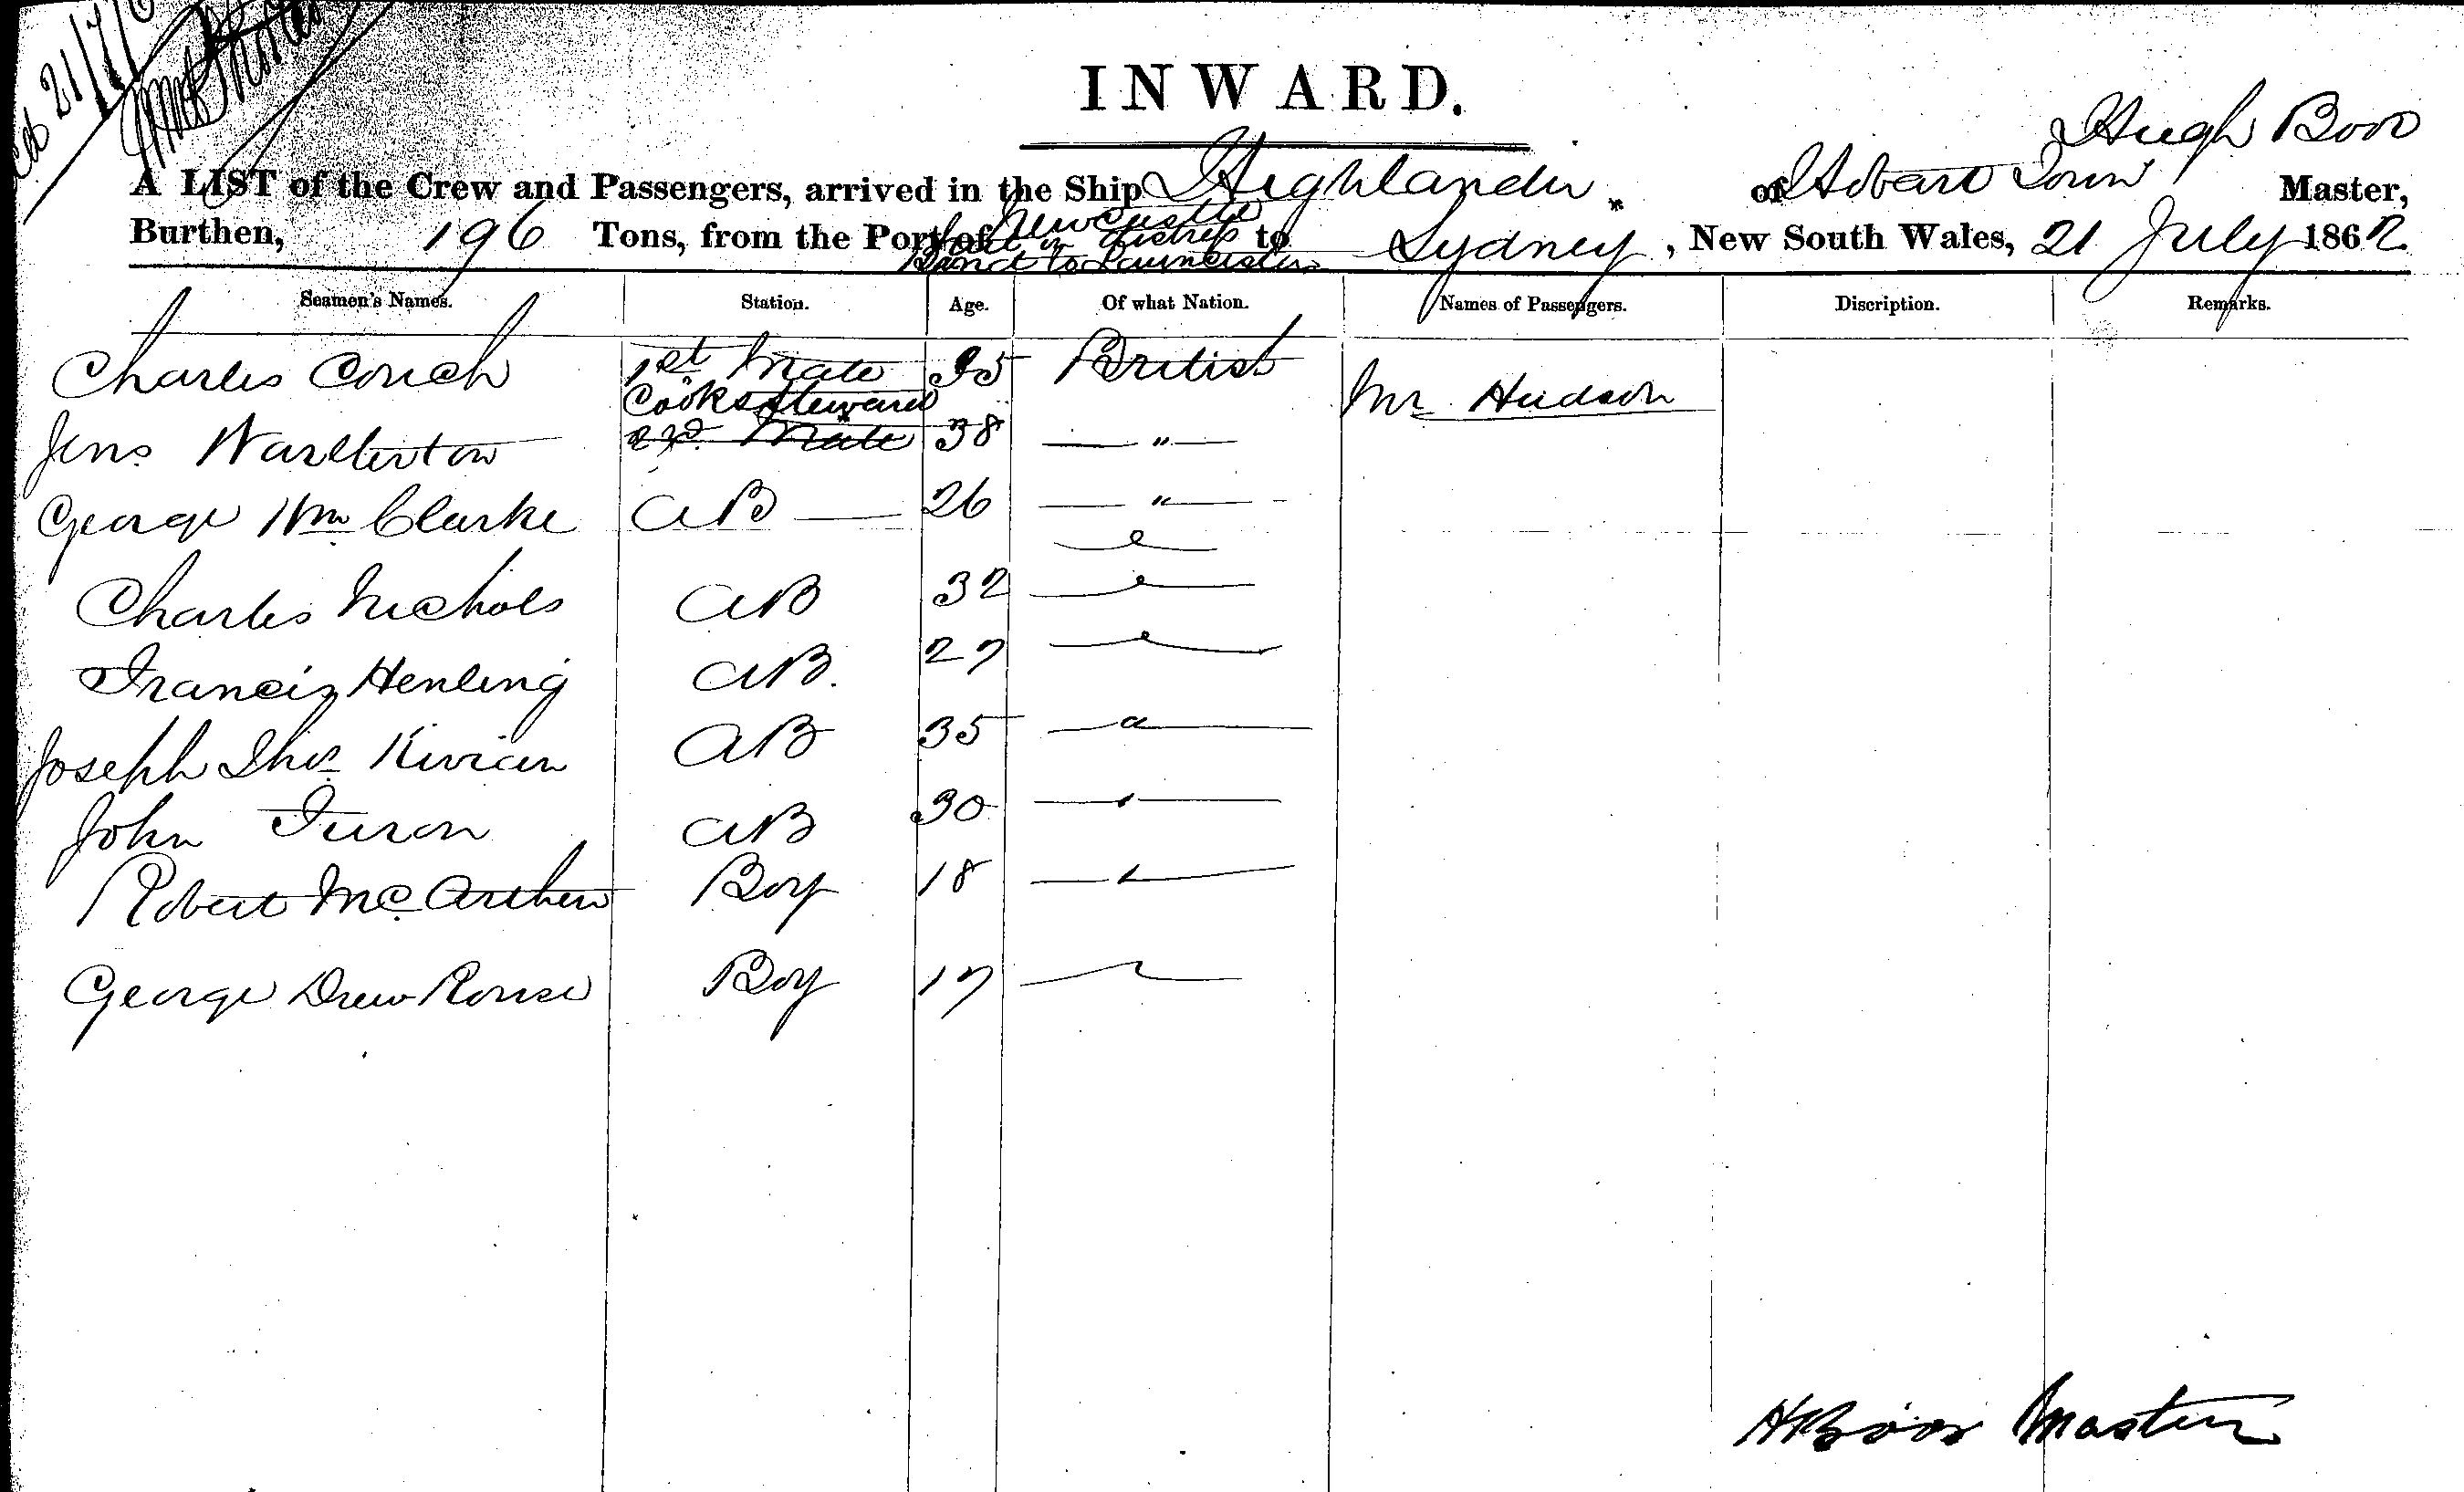 21/7/6
INWARD.
Hugh Boon
A LIST of the Crew and Passengers, arrived in the Ship Highlander of Hobart Town Master,
Newcastle
Burthen, 196 Tons, from the Port of in distress to Sydney, New South Wales, 21 July 1862
Bound to Launceston
Seamen's Names. Station. Age. Of what Nation. Names of Passengers. Discription. Remarks.
Charles Couch 1st Mate 35 British
Cook & Steward Mr Hudson
Jens Warlterton 2nd Mate 38 — " —
George Wm Clarke AB — 26 — " —
Charles Nichols AB 32
Francis Henling AB. 27
Joseph Thos Kivian AB 35
John Turon AB 30
Robert McArthur Boy 18
George Drew Rouse Boy 17
Master